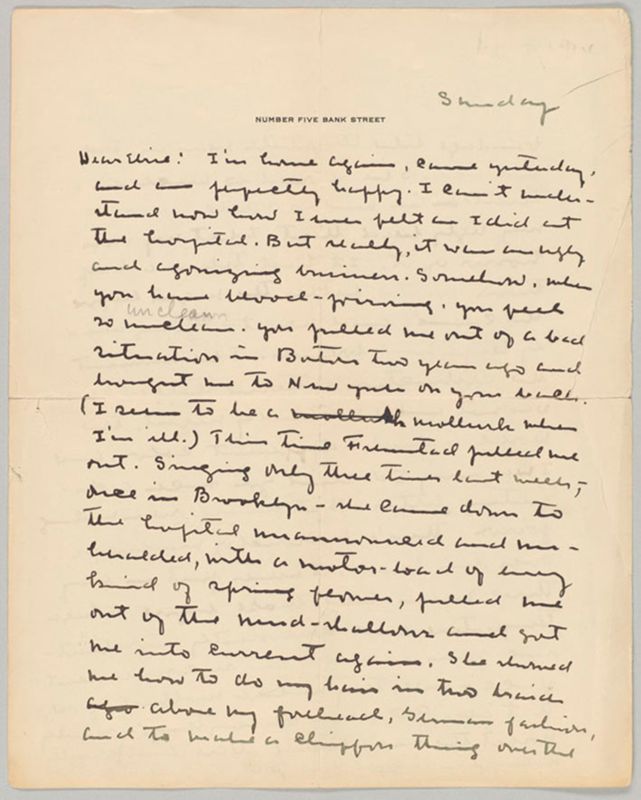 Sunday
NUMBER FIVE BANK STREET
Dear Elsie: I'm home again, came yesterday,
and am perfectly happy. I can't under-
stand now how I ever felt as I did at
the hospital. But really, it was an ugly
and agonizing business. Somehow, when
you have blood-poisoning, you feel
unclean
so unclean. you pulled me out of a bad
situation in Boston two years ago and
brought me to New York on your back.
(I seem to be a mollusk when
I'm ill.) This time Fremstad pulled me
out. Singing only three times last week,
once in Brooklyn - she came down to
the hospital unannounced and un-
heralded, with a motor-load of every
kind of spring flower, pulled me
out of the mud-shallows and got
me into current again. She showed
me how to do my hair in two braids
above my forehead, German fashion,
and to make a chiffon thing over the